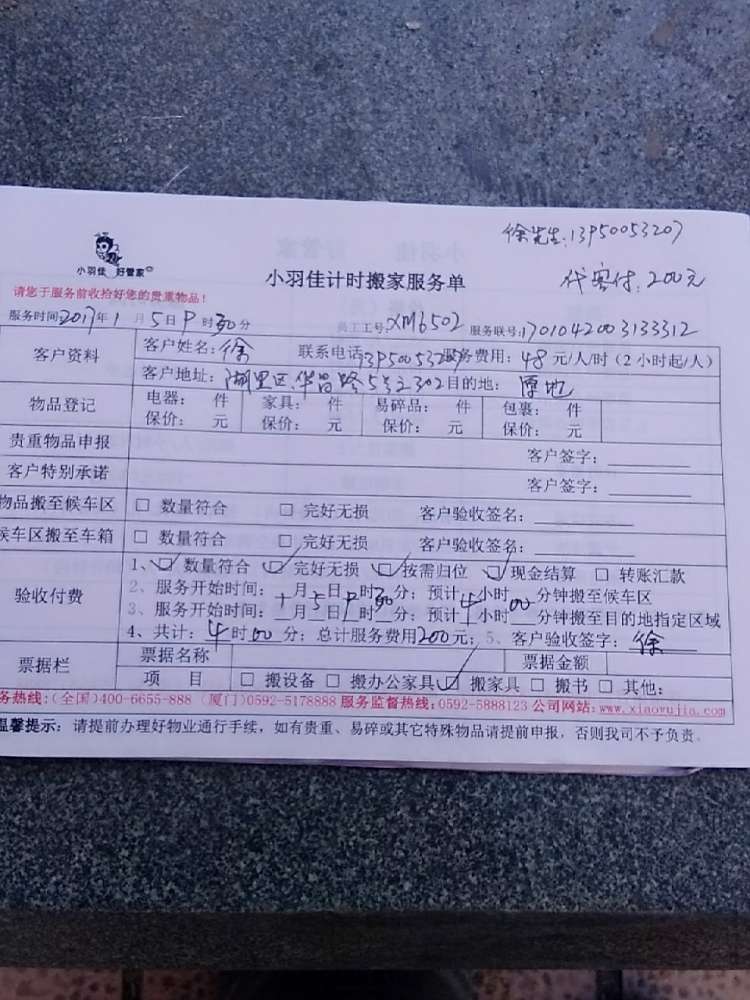 徐先生:13950053207
代客付:200元
小羽佳 好管家
小羽佳计时搬家服务单
请您于服务前收拾好您的贵重物品!
服务时间:2017年1月5日 时30分 员工工号:XM6502 服务联号:1701042003133312
客户资料 客户姓名:徐 联系电话13950053207服务费用:48元/人/时(2小时起/人)
客户地址:湖里区华昌路5号之302目的地:原地
物品登记 电器: 件 家具: 件 易碎品: 件 包裹: 件
保价: 元 保价: 元 保价: 元 保价: 元
贵重物品申报 客户签字:
客户特别承诺 客户签字:
物品搬至候车区 □ 数量符合 □ 完好无损 客户验收签名:
候车区搬至车箱 □ 数量符合 □ 完好无损 客户验收签名:
验收付费 1、☑ 数量符合 ☑ 完好无损 ☑ 按需归位 ☑ 现金结算 □ 转账汇款
2、服务开始时间: 月5日 时30分;预计4小时00分钟搬至候车区
3、服务开始时间: 月 日 时 分;预计 小时 分钟搬至目的地指定区域
4、共计:4时00分;总计服务费用200元;5、客户验收签字:徐
票据栏 票据名称 票据金额
项 目 □ 搬设备 □ 搬办公家具 ☑ 搬家具 □ 搬书 □ 其他:
务热线:(全国)400-6655-888 (厦门)0592-5178888 服务监督热线:0592-5888123 公司网站:www.xiaoyujia.com
温馨提示:请提前办理好物业通行手续,如有贵重、易碎或其它特殊物品请提前申报,否则我司不予负责。